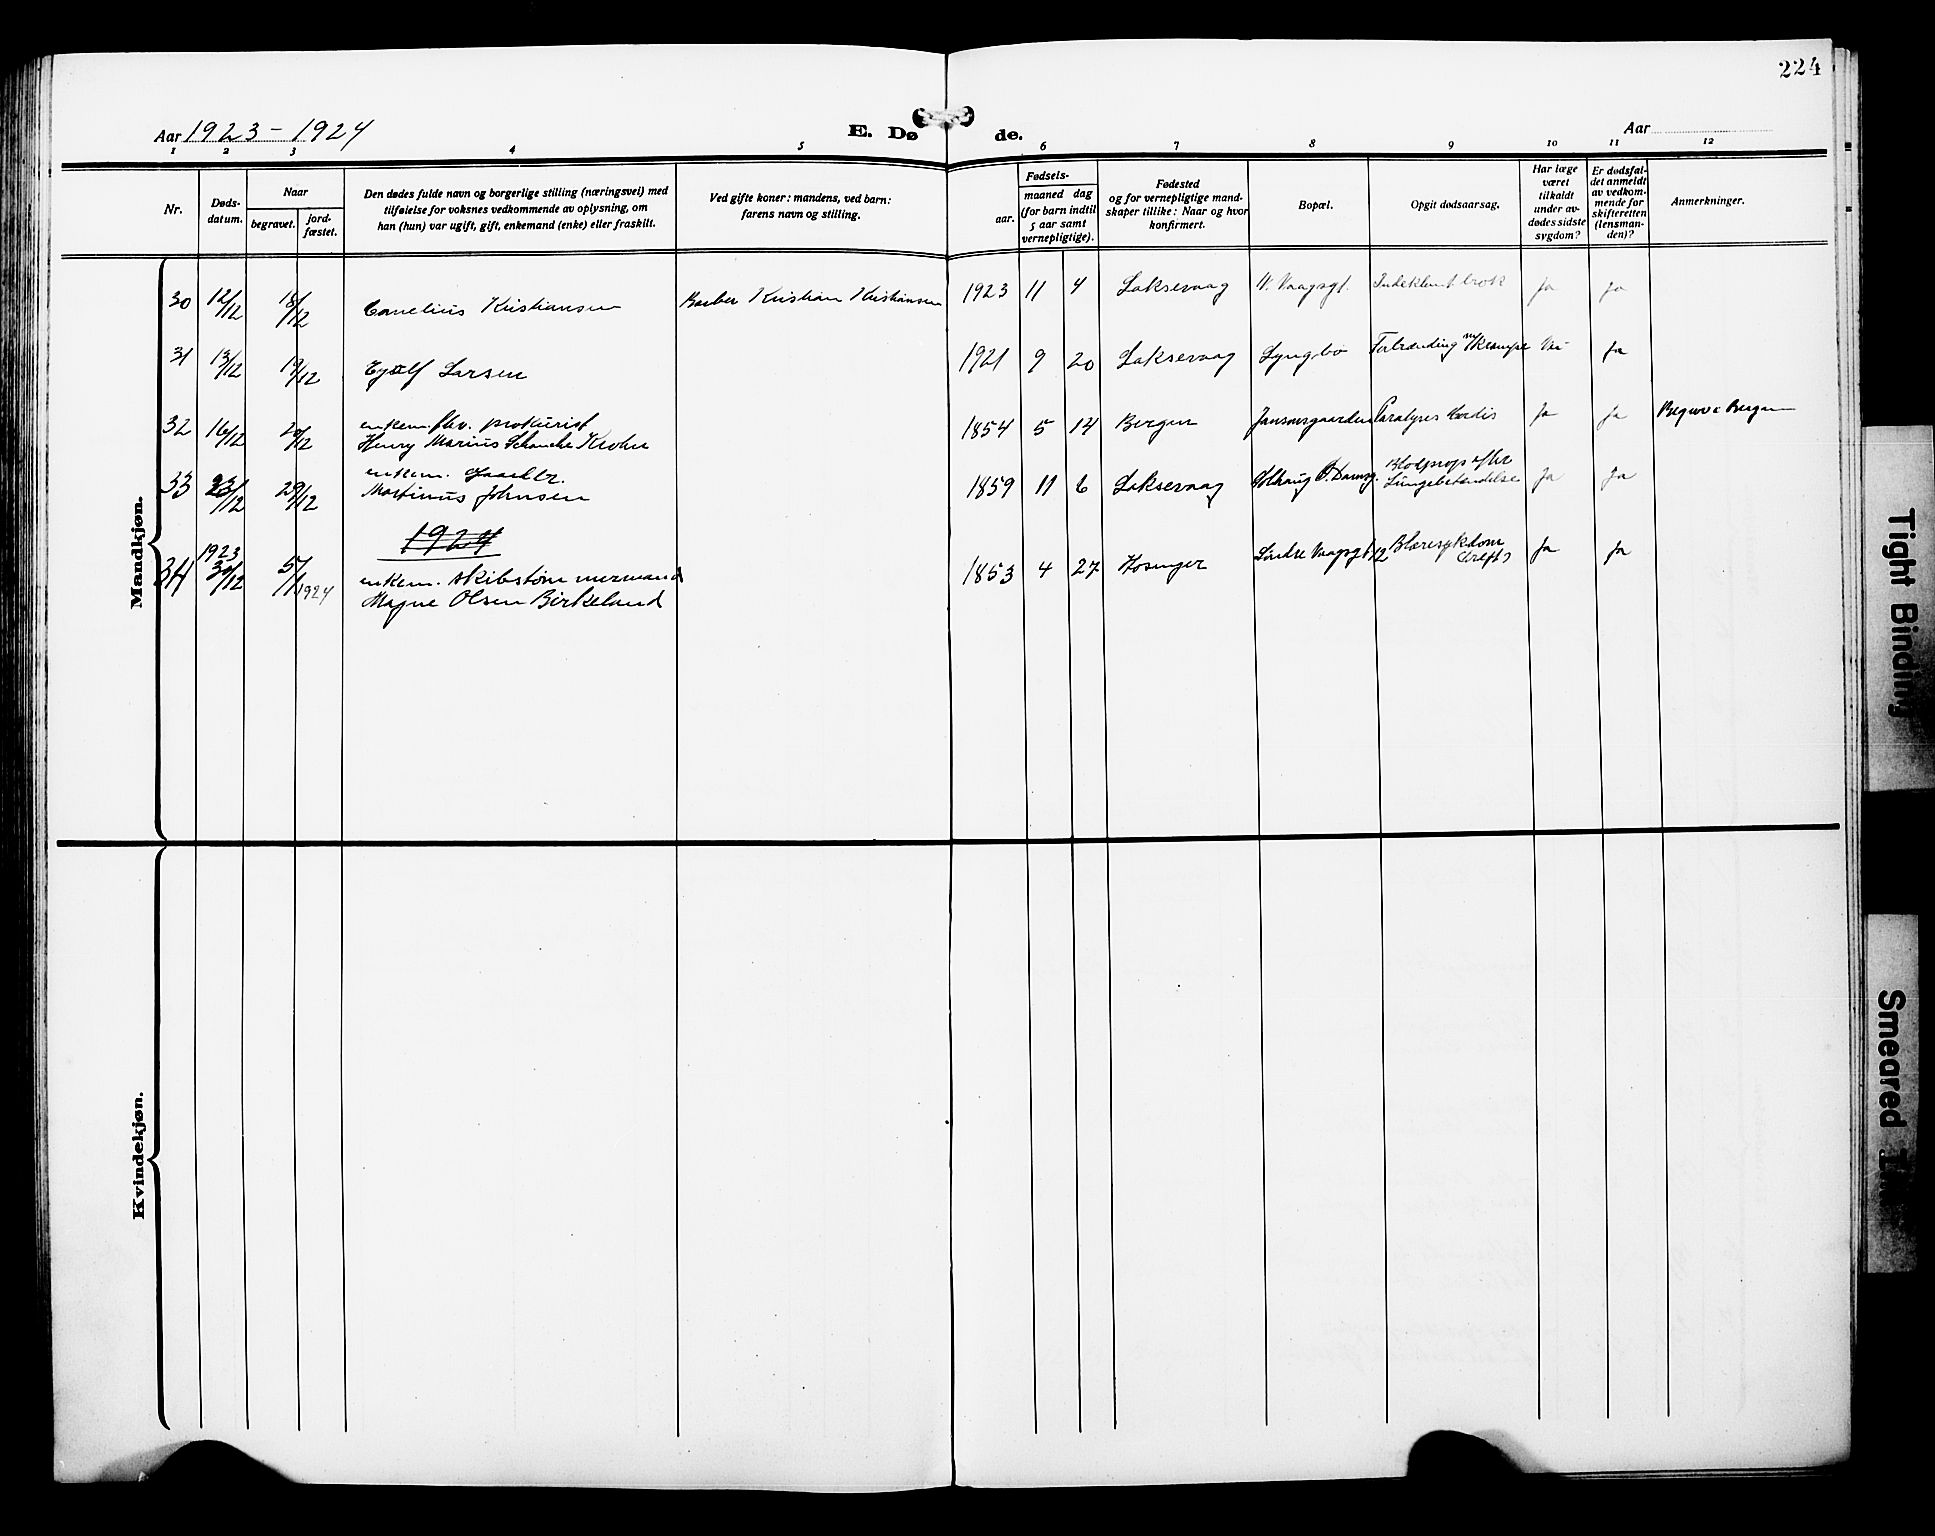 224
Aar 1923 - 1924
E. Dø de.
Aar
1 2 3 4 5 6 7 8 9 10 11 12
Nr.
Døds-
datum.
Naar
begravet.
jord-
fæstet.
Den dødes fulde navn og borgerlige stilling (næringsvei) med
tilføielse for voksnes vedkommende av oplysning, om
han (hun) var ugift, gift, enkemand (enke) eller fraskilt.
Ved gifte koner: mandens, ved barn:
farens navn og stilling.
Fødsels-
aar.
maaned dag
(for barn indtil
5 aar samt
vernepligtige).
Fødested
og for vernepligtige mand-
skaper tillike: Naar og hvor
konfirmert.
Bopæl.
Opgit dødsaarsag.
Har læge
været
tilkaldt
under av-
dødes sidste
sygdom?
Er dødsfal-
det anmeldt
av vedkom-
mende for
skifteretten
(lensman-
den)?
Anmerkninger.
Mandkjøn.
30 12/12 18/12 Cornelius Kristiansen Barber Kristian Kristiansen 1923 11 4 Laksevaag V. Vaagsgt. Indeklemt brok ja ja
31 13/12 19/12 Larsen 1921 9 20 Laksevaag Lyngbø Forbrænding m/Krampe Nei ja
32 16/12 enkem. fhv. prokurist
Henry Marius Schanche Krohn 1854 5 14 Bergen Jansonsgaarden Paralyses Cordis ja ja Begrav. i Bergen
33 23/12 29/12 enkem. Gaardbr.
Martinus Johnsen 1859 11 6 Laksevaag Solhaug Damsg. Blodprop efter
Lungebetændelse ja ja
1924
34 1923
30/12 5/1 1924 enkem. skibstømmermand
Magne Olsen Birkeland 1853 4 27 Hosanger Søndre Vaagsgt. 12 Blæresykdom
ja ja
Kvindekjøn.
Tight Binding
Smeared